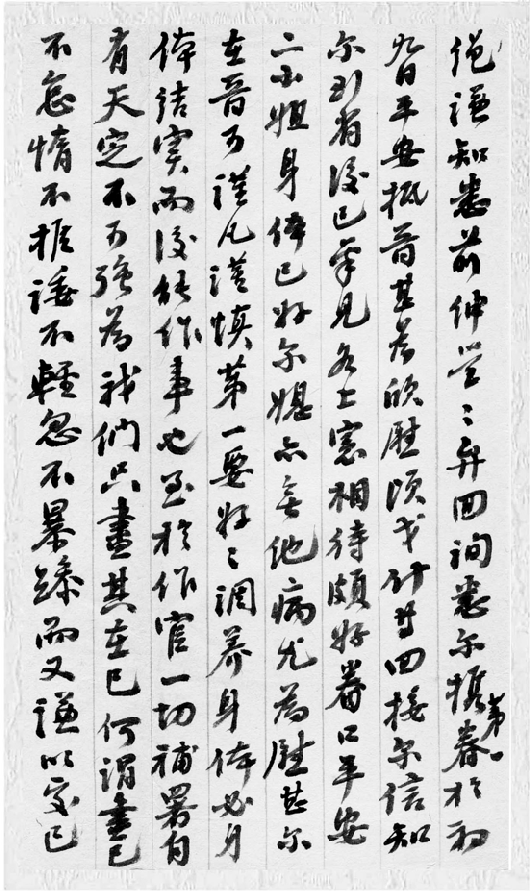 谦知悉前仲〻弁回詢悉尔携眷於初
九日平安抵晋甚為欣慰頃戈什等回接尔信知
尔到省後已禀見各上憲相待頗好眷口平安
二小姐身体已好尔媳亦無他病尤為慰甚尔
在晋可謹凡謹慎第一要好〻調养身体必身
体結实而後能作事也至於作官一切補署自
有天定不可強為我们只盡其在己何謂盡己
不怠惰不推諉不輕忽不暴躁而又謙以交己
第一